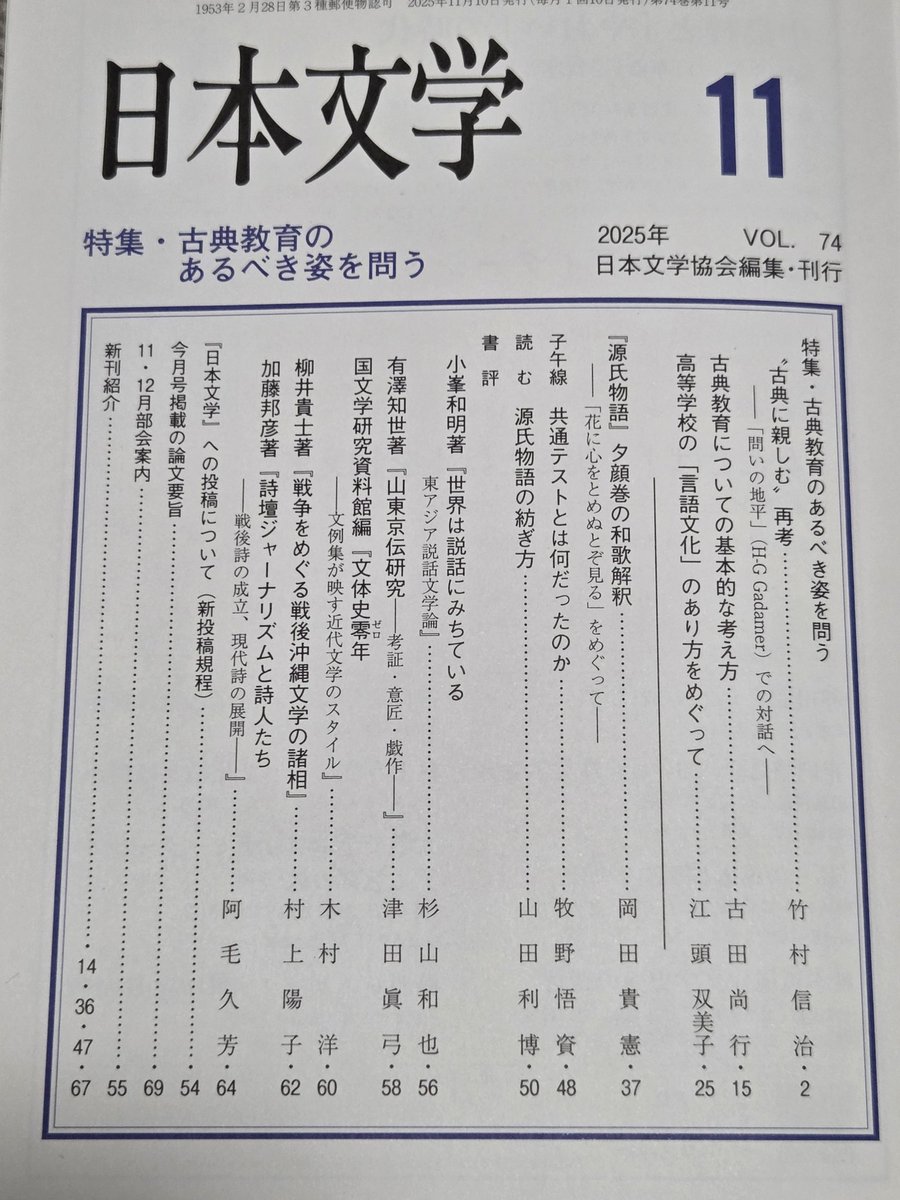 1953年2月28日第3種郵便物認可 2025年11月10日発行(毎月1回10日発行)第74巻第11号
日本文学
11
特集・古典教育の
あるべき姿を問う
2025年 VOL. 74
日本文学協会編集・刊行
特集・古典教育のあるべき姿を問う
〝古典に親しむ〟再考…………竹村信治・2
――「問いの地平」(H-G Gadamer)での対話へ――
古典教育についての基本的な考え方…………古田尚行・15
高等学校の「言語文化」のあり方をめぐって…………江頭双美子・25
『源氏物語』夕顔巻の和歌解釈…………岡田貴憲・37
――「花に心をとめぬとぞ見る」をめぐって――
子午線 共通テストとは何だったのか…………牧野悟資・48
読む 源氏物語の紡ぎ方…………山田利博・50
書評
小峯和明著『世界は説話にみちている
東アジア説話文学論』…………杉山和也・56
有澤知世著『山東京伝研究――考証・意匠・戯作――』…………津田眞弓・58
国文学研究資料館編『文体史零年
ゼロ
――文例集が映す近代文学のスタイル』…………木村洋・60
柳井貴士著『戦争をめぐる戦後沖縄文学の諸相』…………村上陽子・62
加藤邦彦著『詩壇ジャーナリズムと詩人たち
――戦後詩の成立、現代詩の展開――』…………阿毛久芳・64
『日本文学』への投稿について(新投稿規程)…………54
今月号掲載の論文要旨…………69
11・12月部会案内…………55
新刊紹介…………14・36・47・67